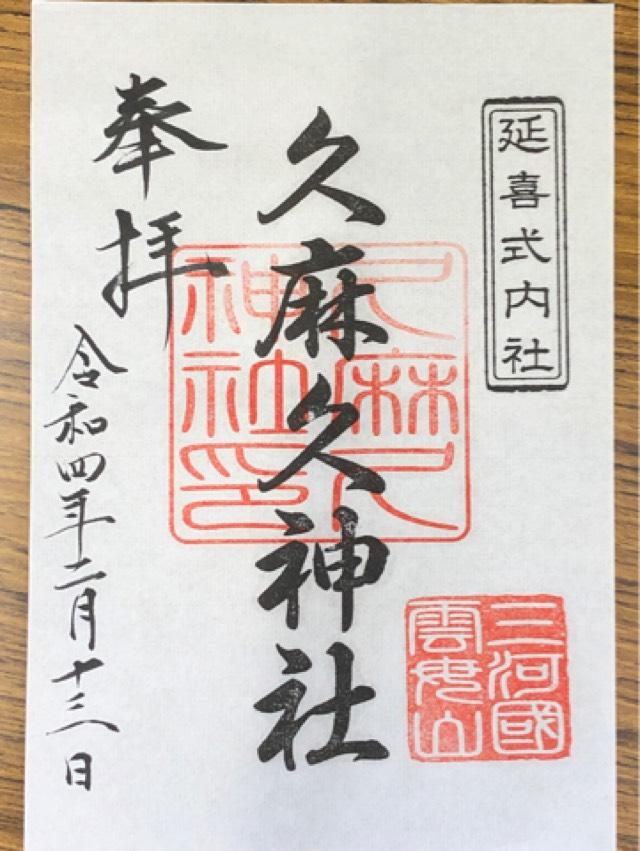 延喜式内社
久麻久神社
久麻久
神社印
三河國
雲母山
奉拝
令和四年二月十三日